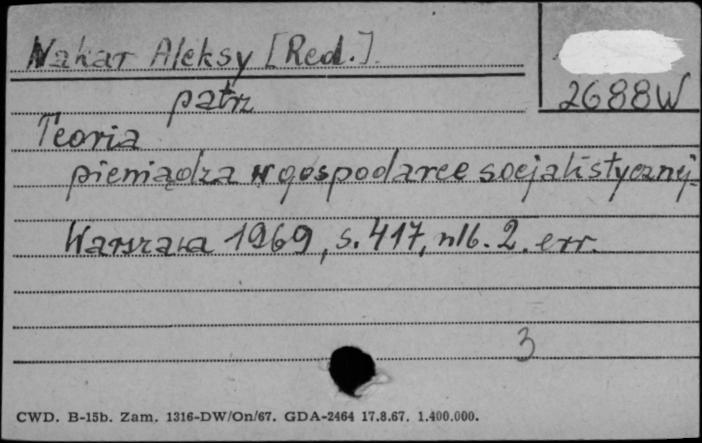 Wakar Aleksy [Red.].
2688W
patrz
Teoria
pieniądza w gospodarce socjalistycznej.
Warszawa 1969, s. 417, nlb. 2. err.
3
CWD. B-15b. Zam. 1316-DW/On/67. GDA-2464 17.8.67. 1.400.000.